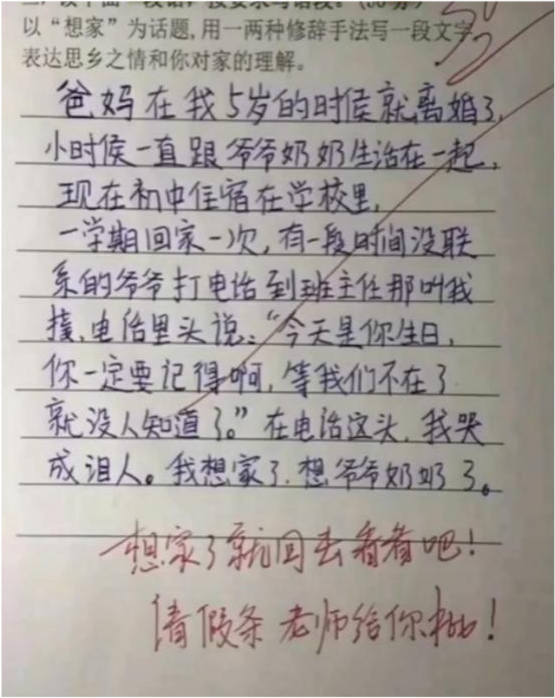 以“想家”为话题,用一两种修辞手法写一段文字,
表达思乡之情和你对家的理解。
爸妈在我5岁的时候就离婚了,
小时侯一直跟爷爷奶奶生活在一起,
现在初中住宿在学校里,
一学期回家一次,有一段时间没联
系的爷爷打电话到班主任那叫我
接,电话里头说:“今天是你生日,
你一定要记得啊,等我们不在了
就没人知道了。”在电话这头,我哭
成泪人。我想家了,想爷爷奶奶了。
想家了就回去看看吧!
请假条老师给你批!